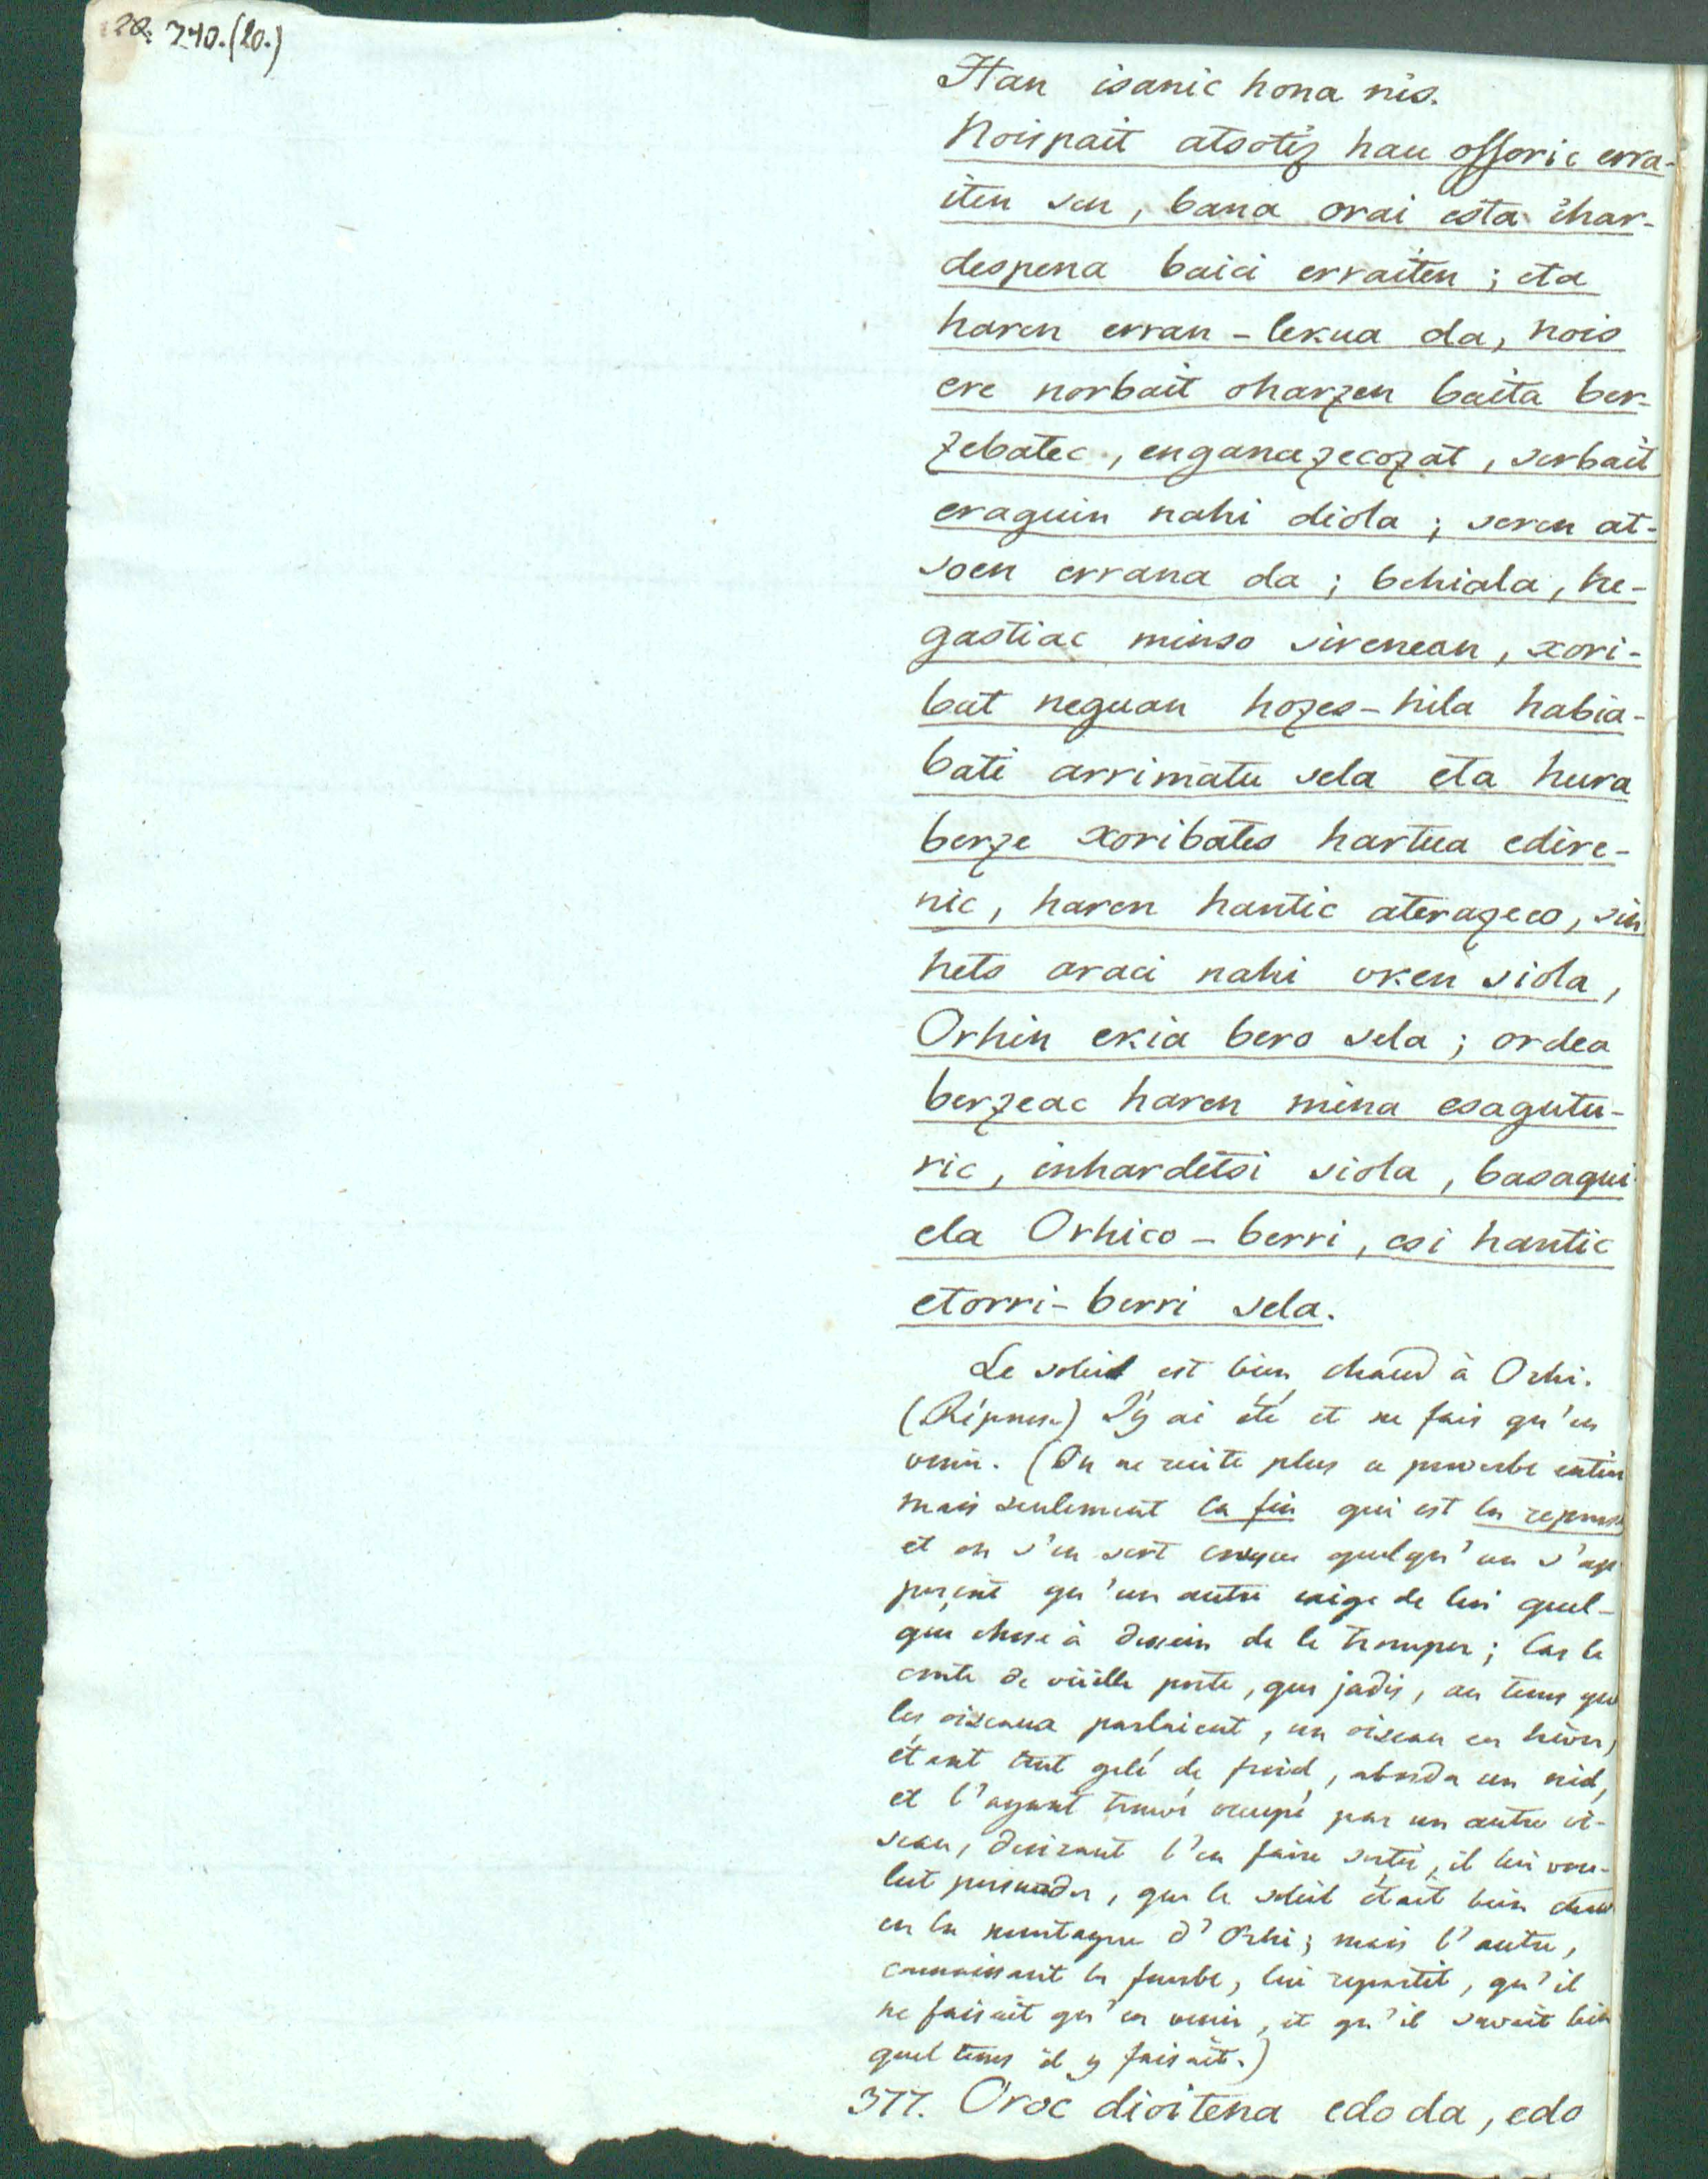 22. 240.(20.)
Han isanic hona nis.
Noispait atsotiz hau ossoric erra-
iten sen, bana orai esta ihar-
despena baici erraiten; eta
haren erran-lekua da, nois
ere norbait oharzen baita ber-
zebatec, enganazecozat, serbait
eraguin nahi diola; seren at-
soen errana da; behiala, he-
gastiac minso sirenean, xori-
bat neguan hozes-hila habia-
bati arrimatu sela eta hura
berze xoribates hartua edire-
nic, haren hantic aterazeco, sin
hets araci nahi uken siola,
Orhin ekia bero sela; ordea
berzeac haren mina esagutu-
ric, inhardetsi siola, basaqui
ela Orhico-berri, esi hantic
etorri-berri sela.
Le soleil est bien chaud à Orhi.
(Réponse) J'y ai été et ne fais qu'en
venir. (On ne recite plus ce proverbe entier
mais seulement la fin qui est la reponse
et on s'en sert lorsque quelqu'un s'ap
perçoit qu'un autre exige de lui quel-
que chose à dessein de le tromper; Car le
conte de vieille porte, que jadis, au tems que
les oiseaux parlaient, un oiseau en hiver,
étant tout gelé de froid, aborda un nid,
et l'ayant trouvé occupé par un autre oi-
seau, desirant l'en faire sortir, il lui vou-
lut persuader, que le soleil était bien chaud
en la montagne d'Orhi; mais l'autre,
connaissant la fourbe, lui repartit, qu'il
ne faisait qu'en venir, et qu'il savait bien
quel tems il y faisait.)
377. Oroc dioitena edo da, edo